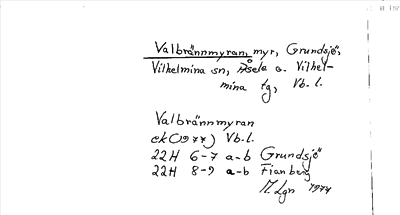 Valbrännmyran, myr, Grundsjö,
Vilhelmina sn, Åsele o. Vilhel-
mina tg, Vb. l.
Valbrännmyran
ek (1977) Vb. l.
22H 6-7 a-b Grundsjö
22H 8-9 a-b Fianberg
M. Lgn 1974